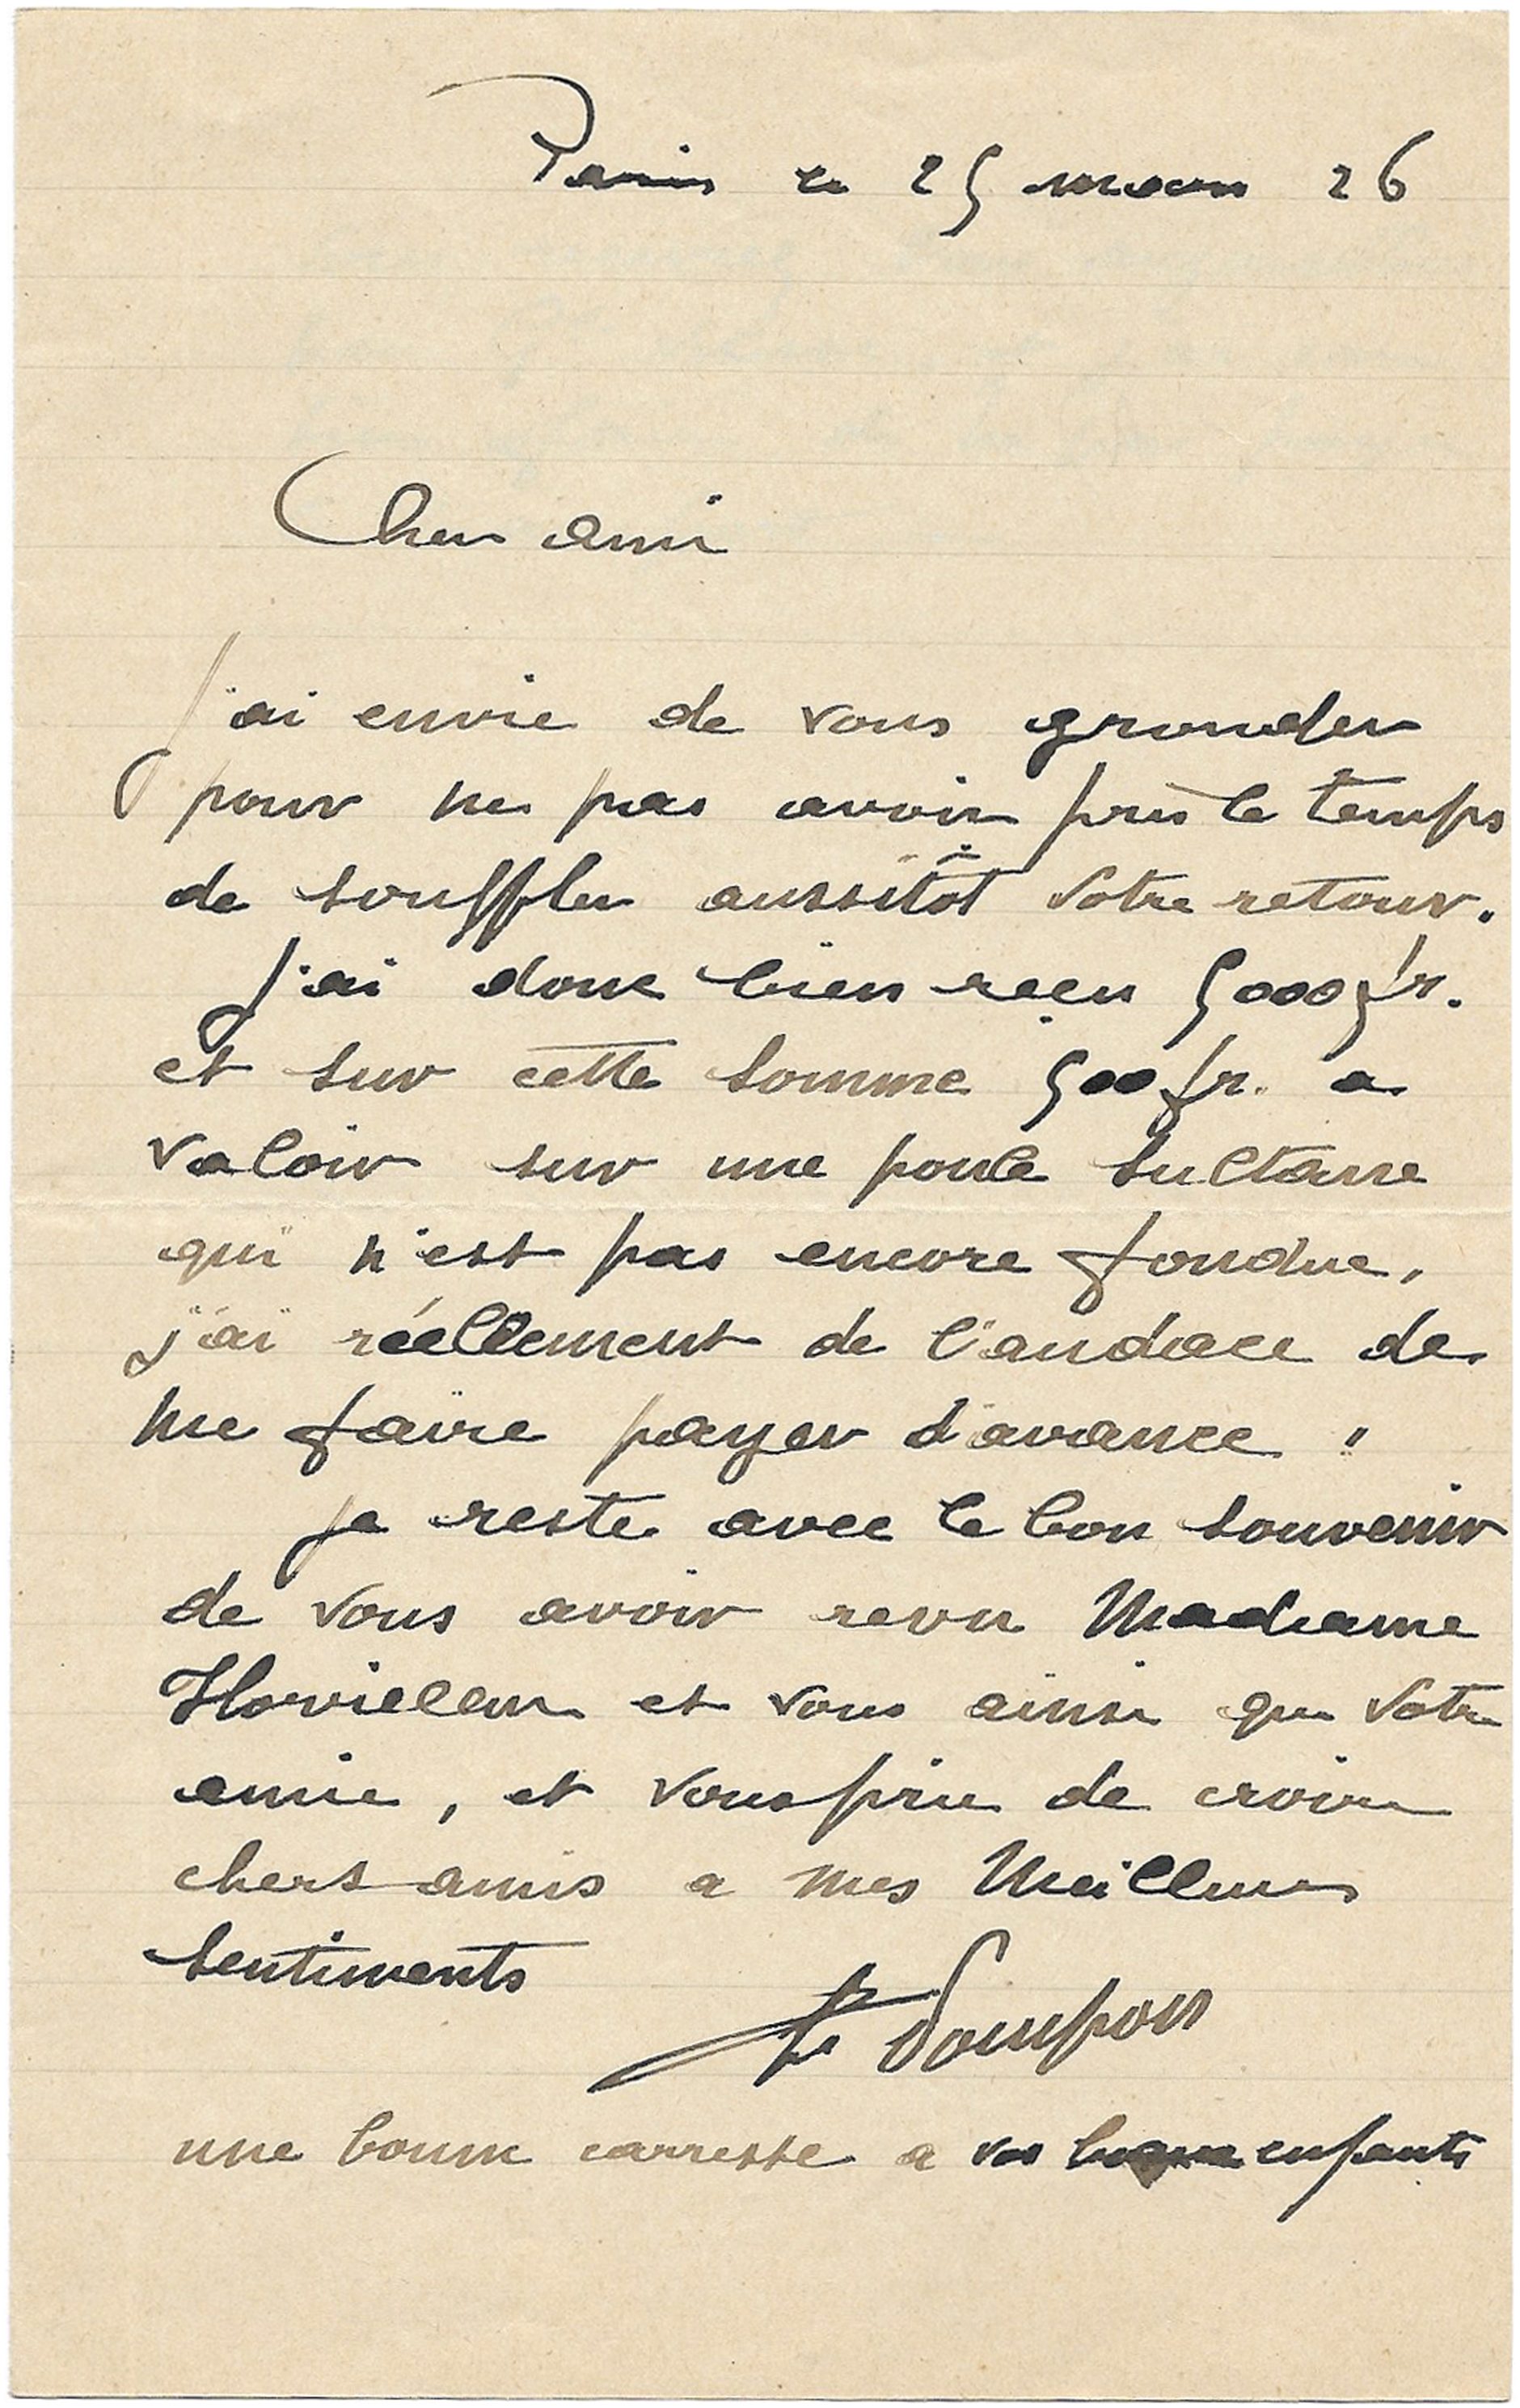 Paris le 25 mars 26
Cher ami
J'ai envie de vous gronder
pour ne pas avoir pris le temps
de souffler aussitôt votre retour.
J'ai donc bien reçu 5000 fr.
et sur cette somme 500 fr. a
valoir sur une poule sultane
qui n'est pas encore fondue,
j'ai réellement de l'audace de
me faire payer d'avance !
je reste avec le bon souvenir
de vous avoir revu Madame
et vous ainsi que votre
amie, et vous prie de croire
chers amis a mes Meilleurs
sentiments
F. Pompon
une bonne carresse a vos enfants